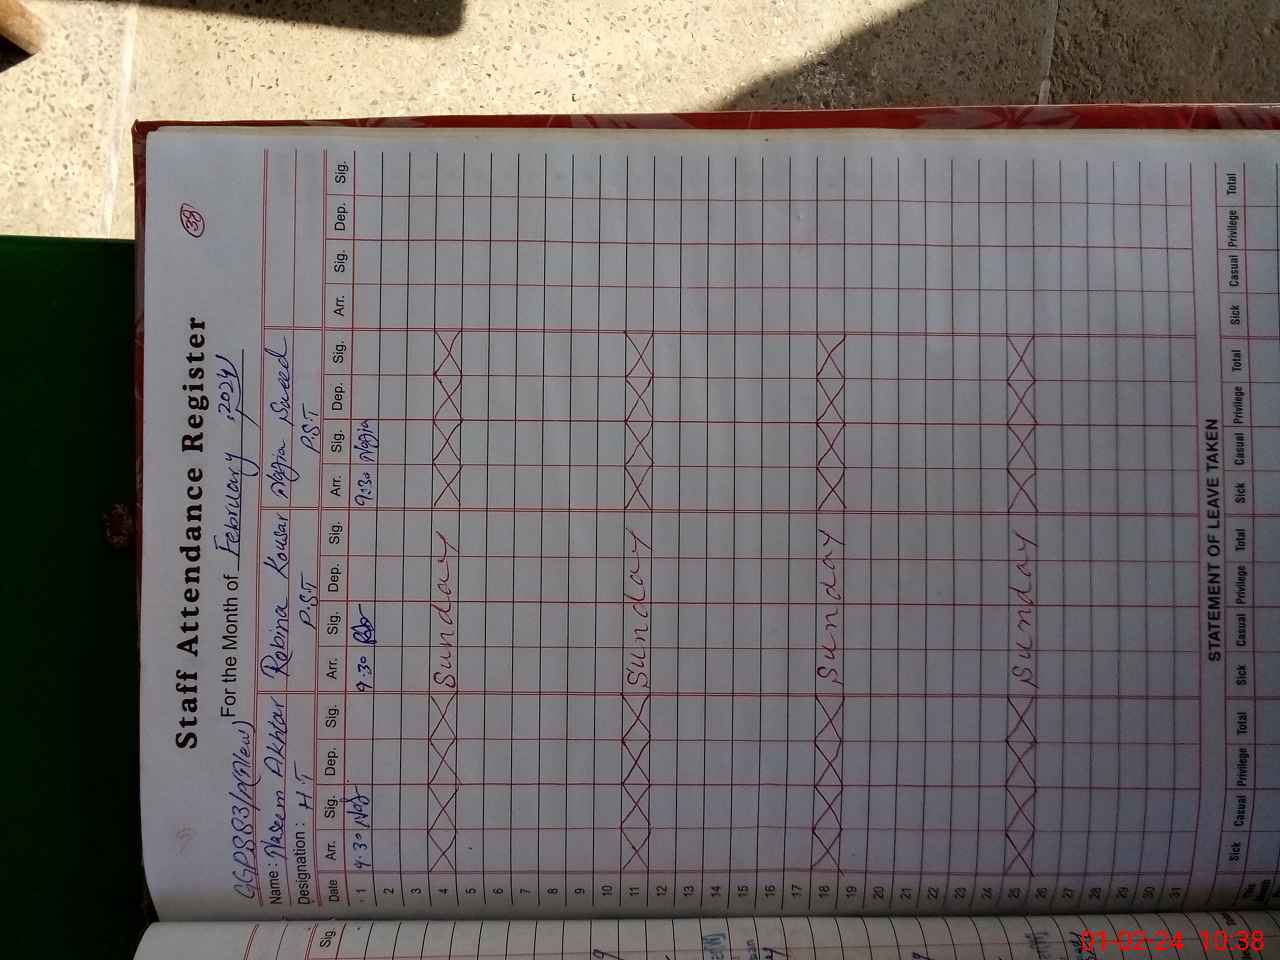 38
Staff Attendance Register
For the Month of February, 2024
Name: Naseem Akhtar Robina Kousar Saeed
Designation: H.T P.S.T P.S.T
Date Arr. Sig. Dep. Sig. Arr. Sig. Dep. Sig. Arr. Sig. Dep. Sig. Arr. Sig. Dep. Sig.
1 9:30 9:30 9:30
2
3
4 Sunday
5
6
7
8
9
10
11 Sunday
12
13
14
15
16
17
18 Sunday
19
20
21
22
23
24
25 Sunday
26
27
28
29
30
31
STATEMENT OF LEAVE TAKEN
Sick Casual Privilege Total Sick Casual Privilege Total Sick Casual Privilege Total Sick Casual Privilege Total
Sig.
01-02-24 10:38